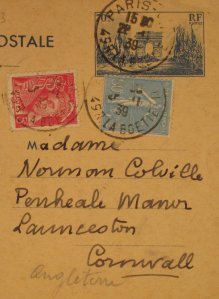 PARIS
15 30
39
RF
OSTALE
POSTES
45 R. LA BOETIE
39
Madame
Norman Colville
Penheale Manor
Launceston
Cornwall
Angleterre